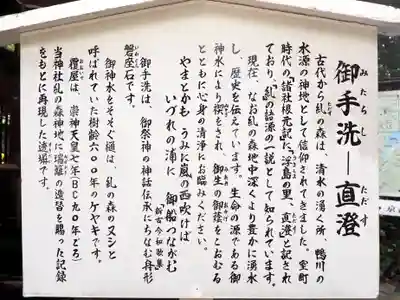 御手洗―直澄
みたらし
ただす
古代から糺の森は、清水の湧く所、鴨川の
水源の神地として信仰されてきました。室町
時代の『諸社根元記』に、浮島の里、直澄と記され
ており、「糺」の語源の一説として知られています。
現在、なお糺の森地中深くより豊かに湧水
し、歴史を伝えています。生命の源である御
神水により禊をされ、御生の御蔭をこおむる
とともに心身の清浄にお臨みください。
やまとかも うみに嵐の西吹けば
いづれの浦に 御船つながむ
『新古今和歌集』
御手洗は、御祭神の神話伝承にちなむ舟形
磐座石です。
いわくら
御神水をそそぐ樋は、糺の森のヌシと
呼ばれていた樹齢六〇〇年のケヤキです。
覆屋は、崇神天皇七年(BC九〇年ごろ)
当神社糺の森神地に瑞籬の造替を賜った記録
をもとに再現した造場です。